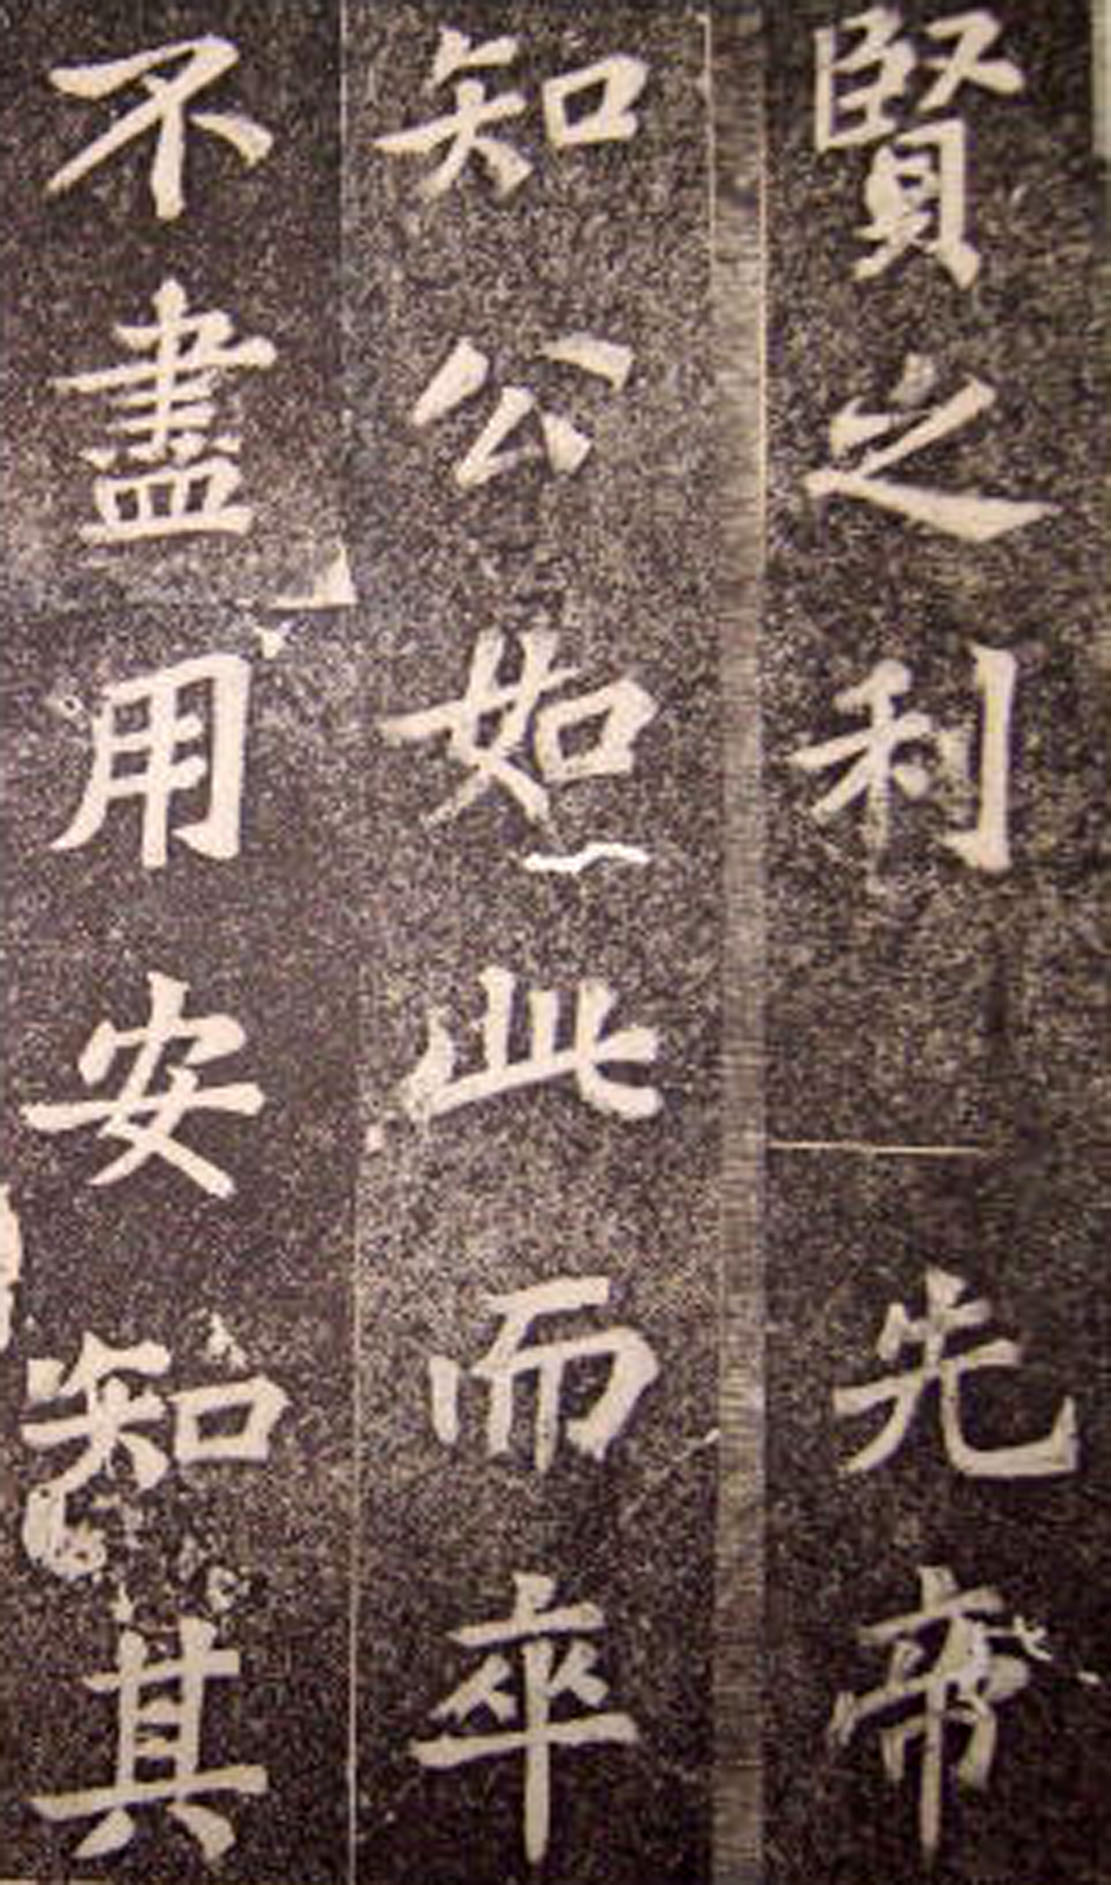 賢之利先帝
知公如此而卒
不盡用安知其